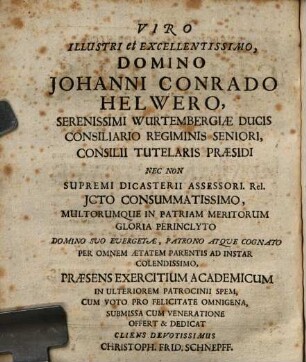 VIRO
ILLUSTRI et EXCELLENTISSIMO,
DOMINO
JOHANNI CONRADO
HELWERO,
SERENISSIMI WURTEMBERGIÆ DUCIS
CONSILIARIO REGIMINIS SENIORI,
CONSILII TUTELARIS PRÆSIDI
NEC NON
SUPREMI DICASTERII ASSESSORI. Rel.
JCTO CONSUMMATISSIMO,
MULTORUMQUE IN PATRIAM MERITORUM
GLORIA PERINCLYTO
DOMINO SUO EVERGETÆ, PATRONO ATQUE COGNATO
PER OMNEM ÆTATEM PARENTIS AD INSTAR
COLENDISSIMO,
PRÆSENS EXERCITIUM ACADEMICUM
IN ULTERIOREM PATROCINII SPEM,
CUM VOTO PRO FELICITATE OMNIGENA,
SUBMISSA CUM VENERATIONE
OFFERT & DEDICAT
CLIENS DEVOTISSIMUS
CHRISTOPH. FRID. SCHNEPFF.